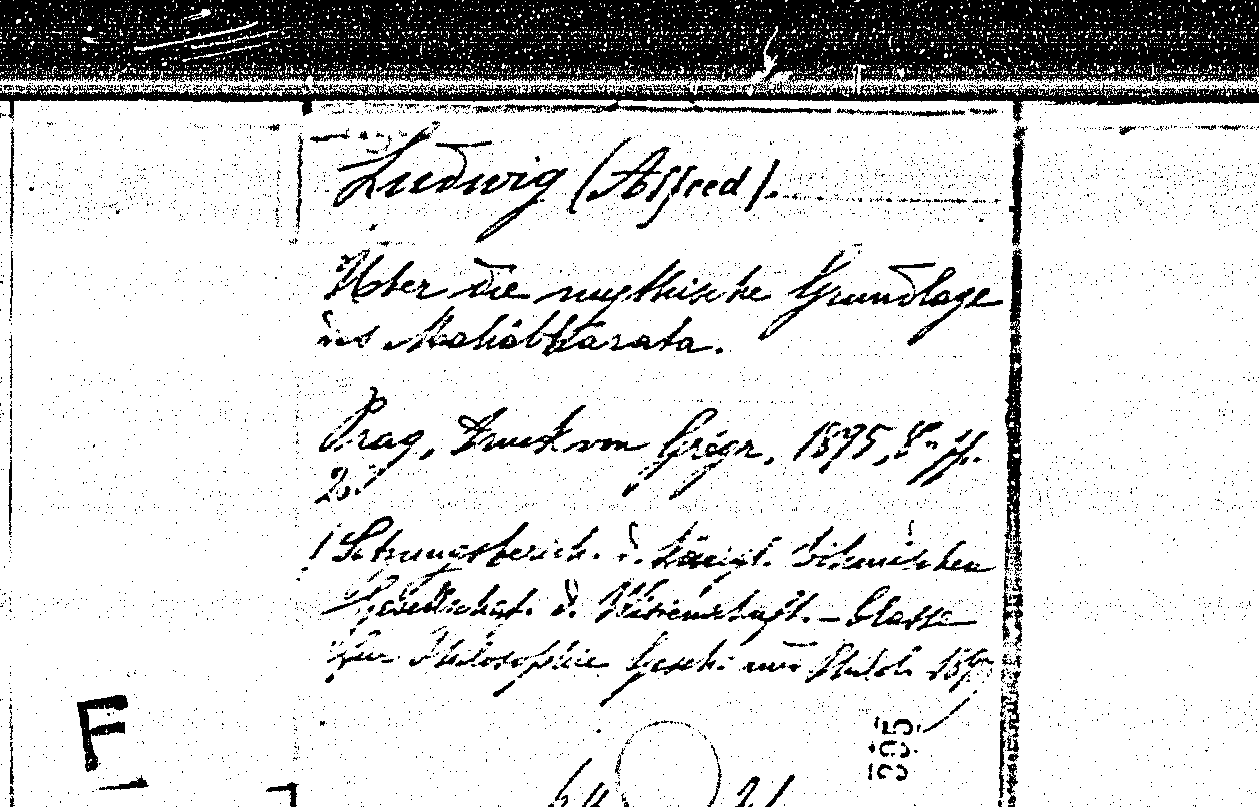 Ludwig (Alfred).
Über die mythische Grundlage
des Mahâbhârata.
Prag, Druck von Grégr, 1895, 8°
(Sitzungsberich. d. königl. böhmischen
Gesellschaft. d. Wissenschaft. - Classe
für Philosophie Gesch. und Philol.
395
F